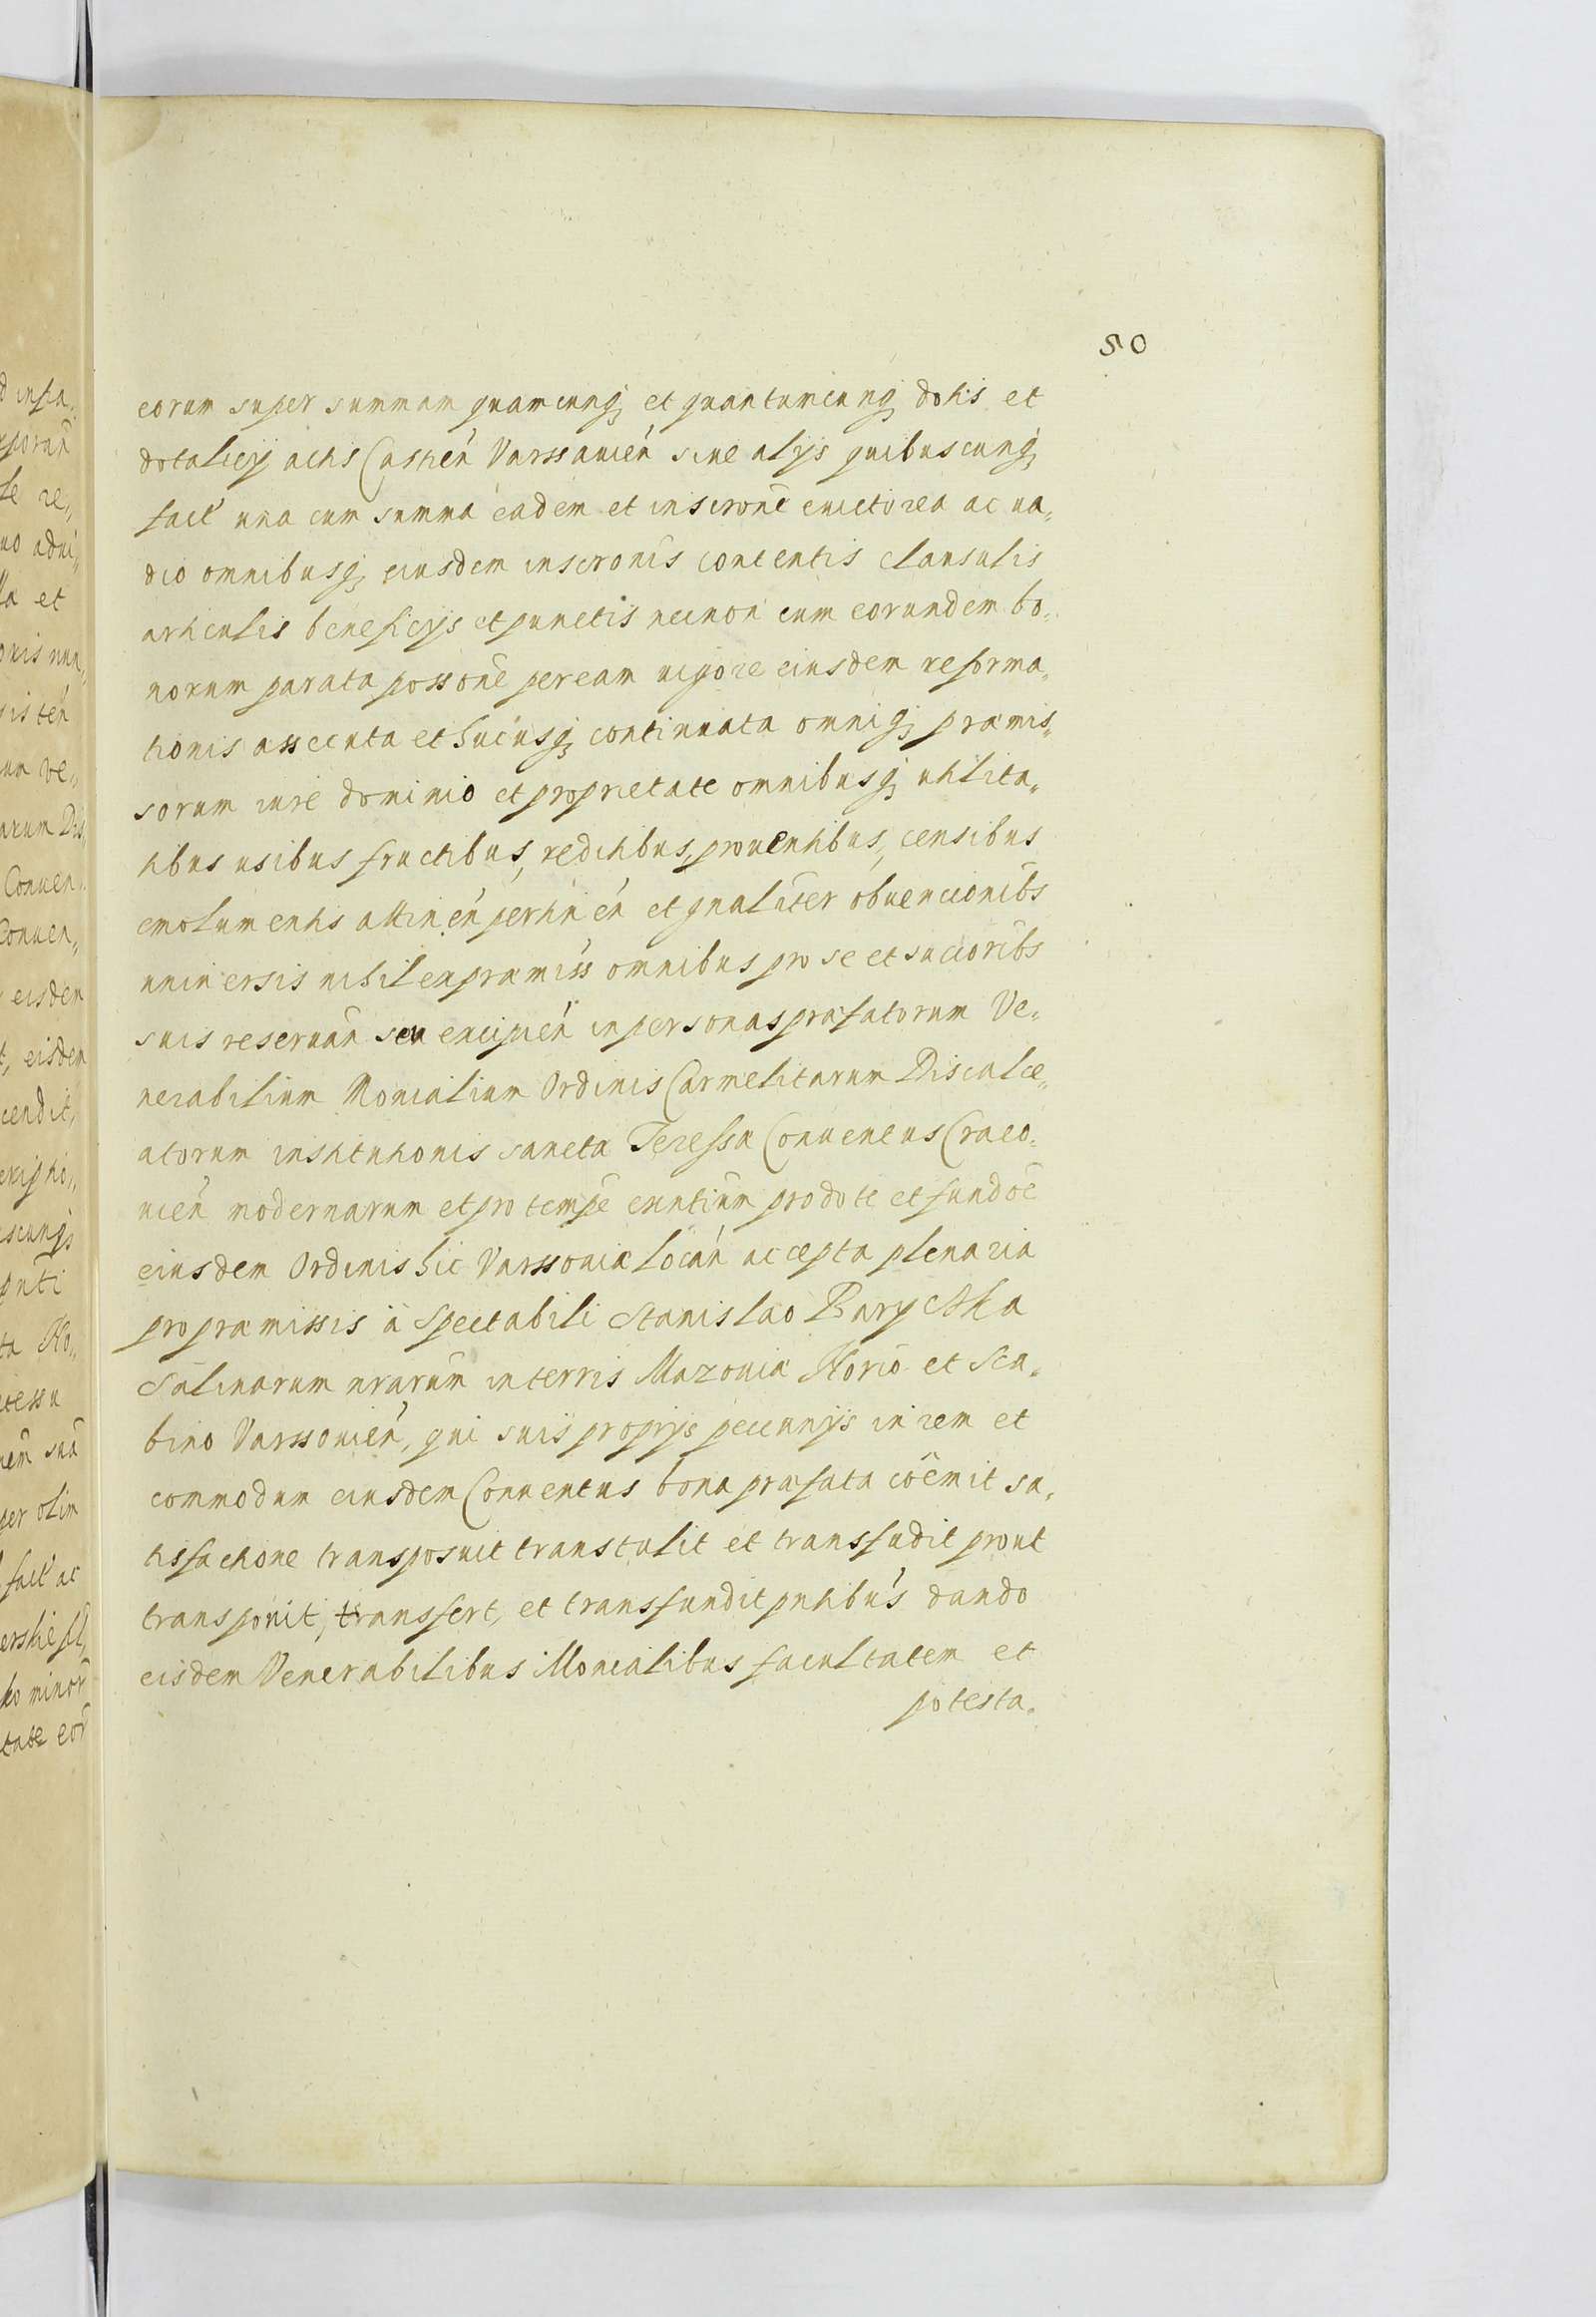 50
eorum super summam quamcunq; et quantumcunq; dotis et
dotalicÿ actis Castren̄ Varssauien̄ siue alÿs quibuscunq;
fact' una cum summa eadem et inscrone euictorea ac ua„
dio omnibusq; eiusdem inscronis contentis clausulis
articulis beneficÿs et punctis necnon cum eorundem bo„
norum parata possone per eam uigore eiusdem reforma„
tionis assecuta et hucusq; continuata omniq; præmis„
sorum iure dominio et proprietate omnibusq; utilita„
tibus usibus fructibus, reditibus, prouentibus, censibus
emolumentis attinen̄ pertinen̄ et gnaliter obuencionibs
uniuersis nihil ex præmiss omnibus pro se et succoribs
suis reseruan̄ seu excipien̄ in personas præfatorum Ve„
nerabilium Monialium Ordinis Carmelitarum Discalce„
atorum institutionis sanctæ Teressæ Conuentus Craco„
uien̄ modernarum et pro tempe exntium pro dote et fundoē
eiusdem Ordinis hic Varssouiæ locan̄ accepta plenaria
pro præmissis à Spectabili Stanislao Baryczka
Salinarum nrarum in terris Mazouiæ Notrio et Sca„
bino Varssouien̄, qui suis proprÿs pecunÿs in rem et
commodum eiusdem Conuentus bona præfata coēmit sa„
tisfactione transposuit transtulit et transfudit prout
transponit, transfert, et transfundit pntibus dando
eisdem Venerabilibus Monialibus facultatem et
potesta„
d insta„
le re„
uo adui„
la et
onis nun„
sisten̄
ua Ve„
arum Dis
Conuen„
Conuen„
eisdem
t, eisdem
cendit,
scunq;
pnti
ta No„
per olim
fact' ac